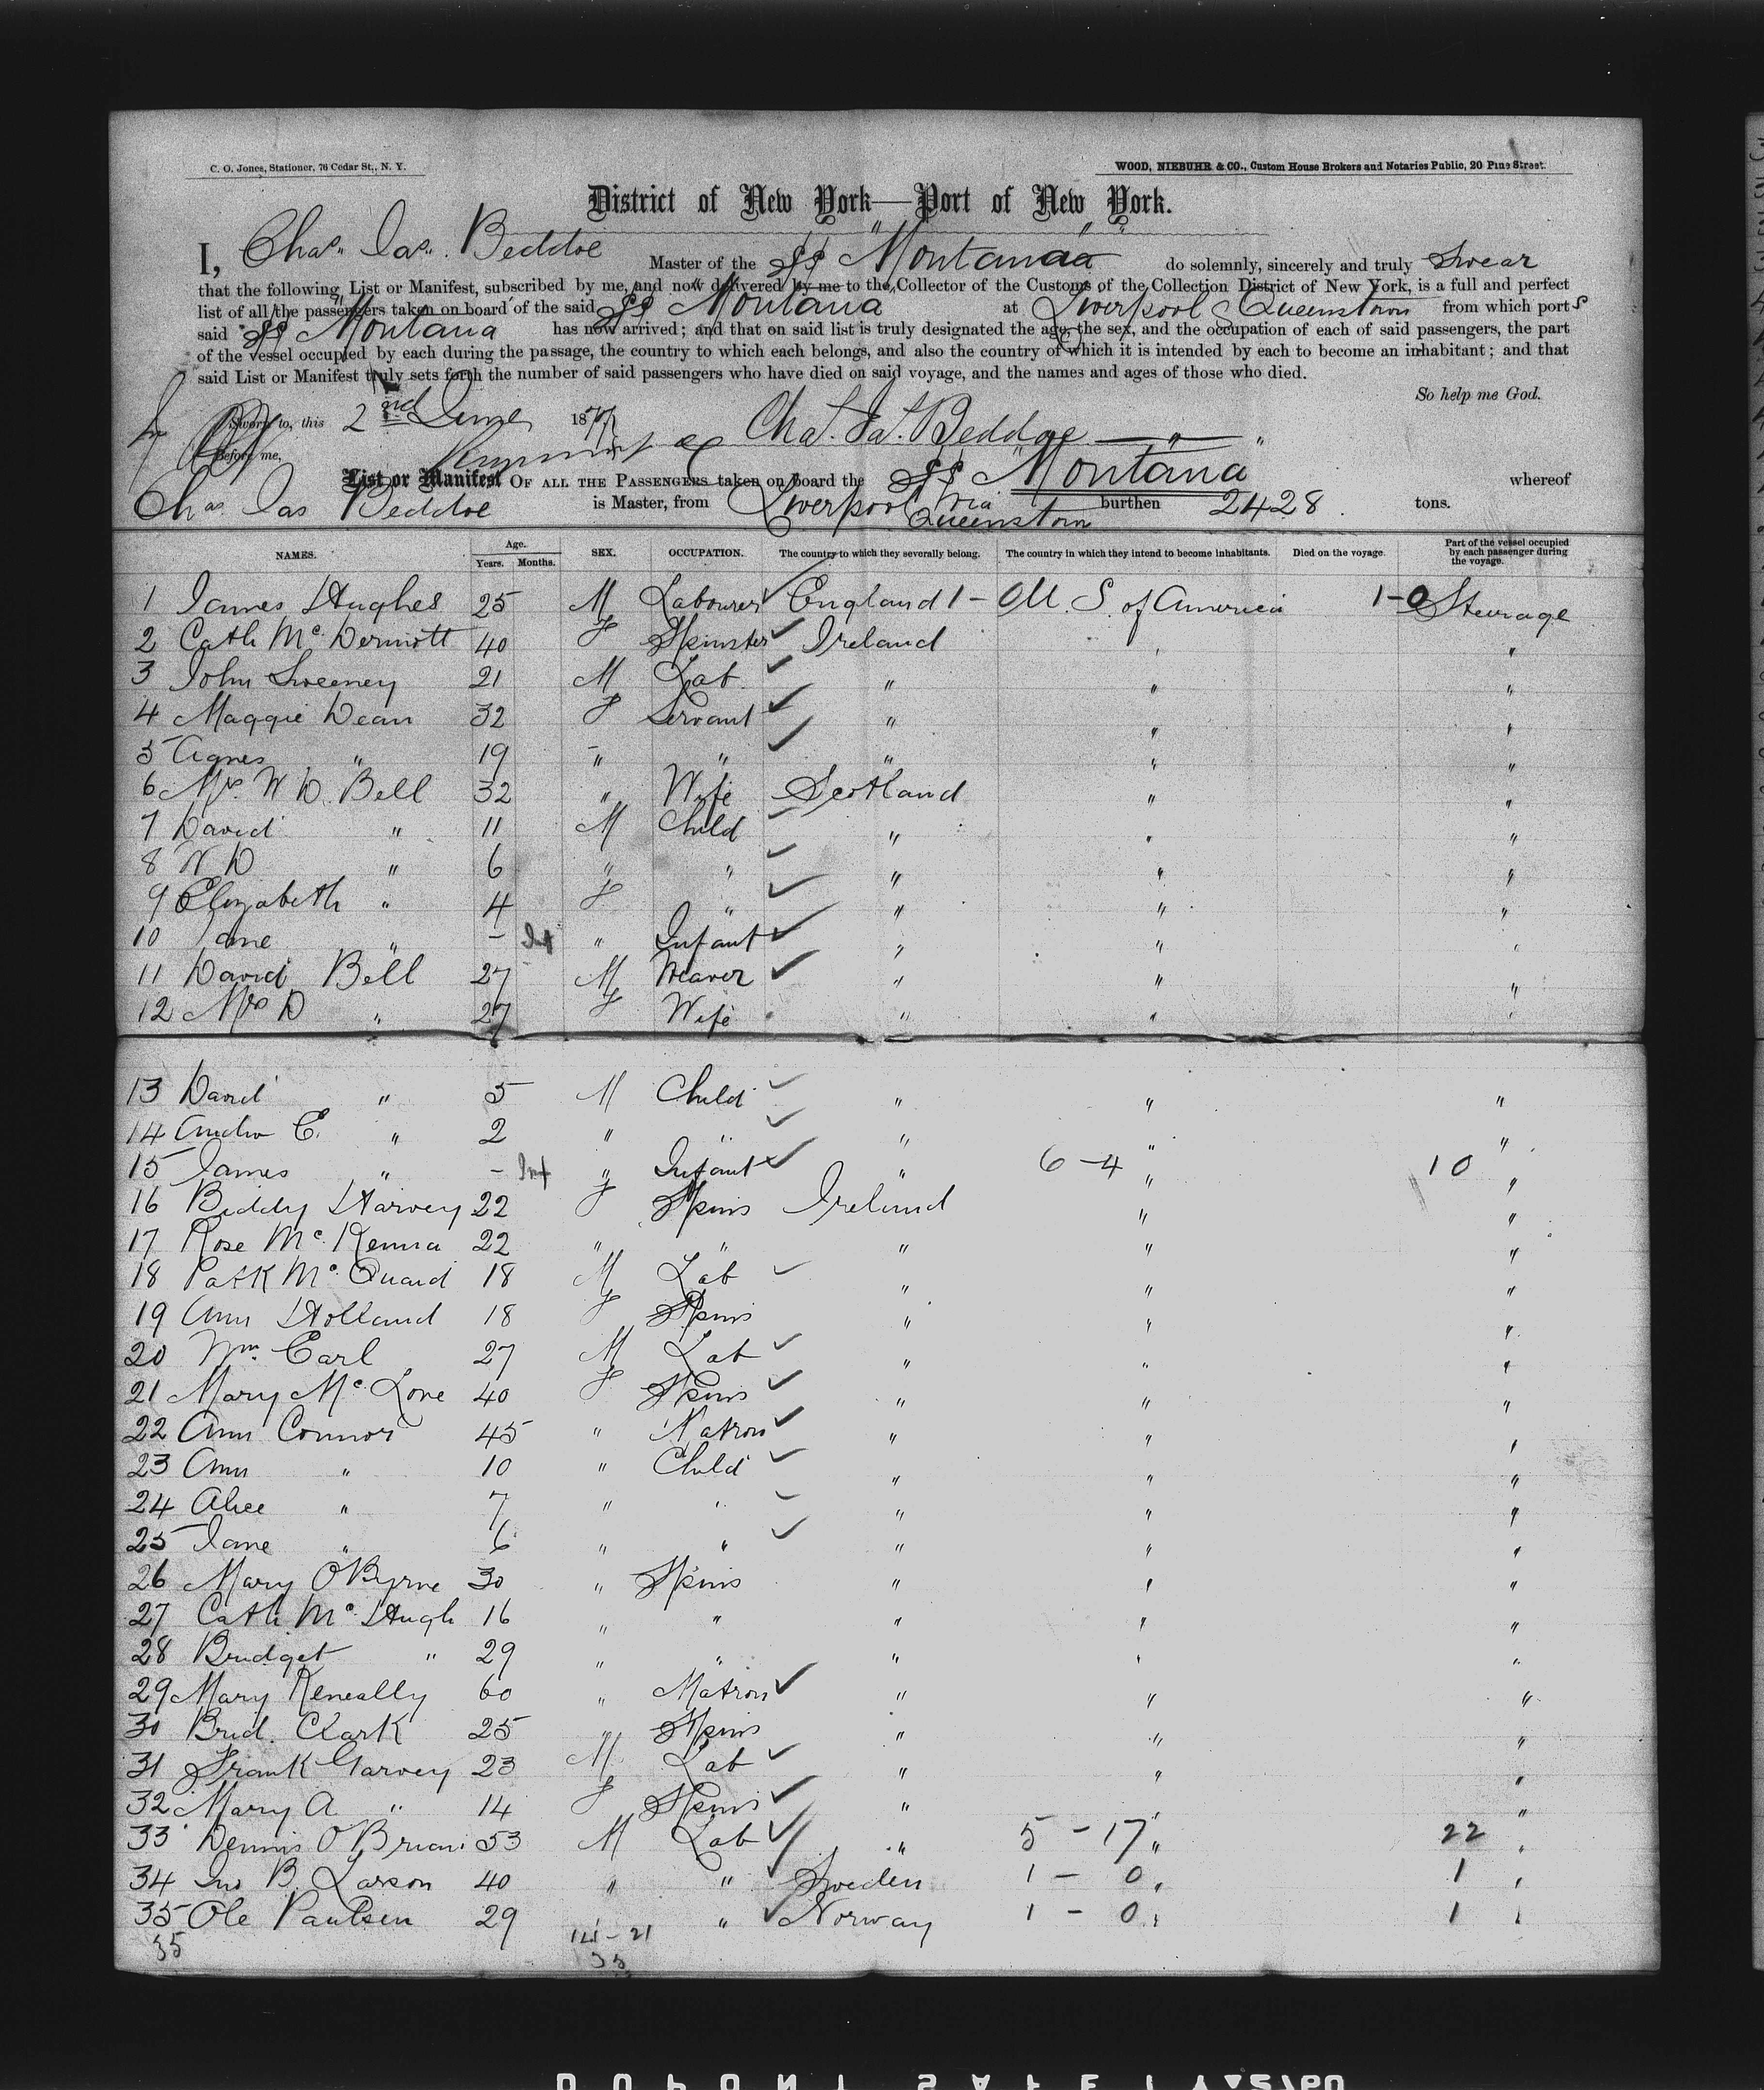 C. O. Jones, Stationer, 76 Cedar St., N. Y.
WOOD, NIEBUHR & CO., Custom House Brokers and Notaries Public, 20 Pine Street.
District of New York—Port of New York.
I, Chas. Jas. Beddoe Master of the SS "Montana" do solemnly, sincerely and truly swear
that the following List or Manifest, subscribed by me, and now delivered by me to the Collector of the Customs of the Collection District of New York, is a full and perfect
list of all the passengers taken on board of the said SS "Montana at Liverpool & Queenstown from which ports
said SS Montana has now arrived; and that on said list is truly designated the age, the sex, and the occupation of each of said passengers, the part
of the vessel occupied by each during the passage, the country to which each belongs, and also the country of which it is intended by each to become an inhabitant; and that
said List or Manifest truly sets forth the number of said passengers who have died on said voyage, and the names and ages of those who died.
So help me God.
Sworn to, this 2nd June 187 Chas. Jas. Beddoe
Before me,
List or Manifest OF ALL THE PASSENGERS taken on board the SS "Montana whereof
Chas Jas Beddoe is Master, from Liverpool Via Queenstown burthen 2428 tons.
NAMES. Age. Years. Months. SEX. OCCUPATION. The country to which they severally belong. The country in which they intend to become inhabitants. Died on the voyage. Part of the vessel occupied by each passenger during the voyage.
1 James Hughes 25 M Labourer England 1- 0 U. S. of America 1-0 Steerage
2 Cath Mc Dermott 40 F Spinster Ireland " "
3 John Sweeney 21 M Lab " " "
4 Maggie Dean 32 F Servant " " "
5 Agnes " 19 " " " " "
6 Mrs W D. Bell 32 " Wife Scotland " "
7 David " 11 M Child " " "
8 W D " 6 " " " " "
9 Elizabeth " 4 F " " " "
10 Jane " - Inf " Infant " " "
11 David Bell 27 M Weaver " " "
12 Mrs D " 27 F Wife " " "
13 David " 5 M Child " " "
14 Andw E. " 2 " " " " "
15 James " - Inf " Infant " 6 -4 " 10 "
16 Biddy Harvey 22 F Spins Ireland " "
17 Rose Mc Kenna 22 " " " " "
18 Patk Mc Quaid 18 M Lab " " "
19 Ann Holland 18 F Spins " " "
20 Wm. Earl 27 M Lab " " "
21 Mary Mc Lone 40 F Spins " " "
22 Ann Connor 45 " Matron " " "
23 Ann " 10 " Child " " "
24 Alice " 7 " " " " "
25 Jane " 6 " " " " "
26 Mary O'Byrne 30 " Spins " " "
27 Cath Mc Hugh 16 " " " " "
28 Bridget " 29 " " " " "
29 Mary Keneally 60 " Matron " " "
30 Brid. Clark 25 " Spins " " "
31 Frank Garvey 23 M Lab " " "
32 Mary A " 14 F Spins " " "
33 Dennis O'Brian 53 M Lab " 5 - 17 " 22 "
34 Jno B. Larson 40 " " Sweden 1 - 0 " 1 "
35 Ole Paulsen 29 " Norway 1 - 0 " 1 "
35 14 - 21
35